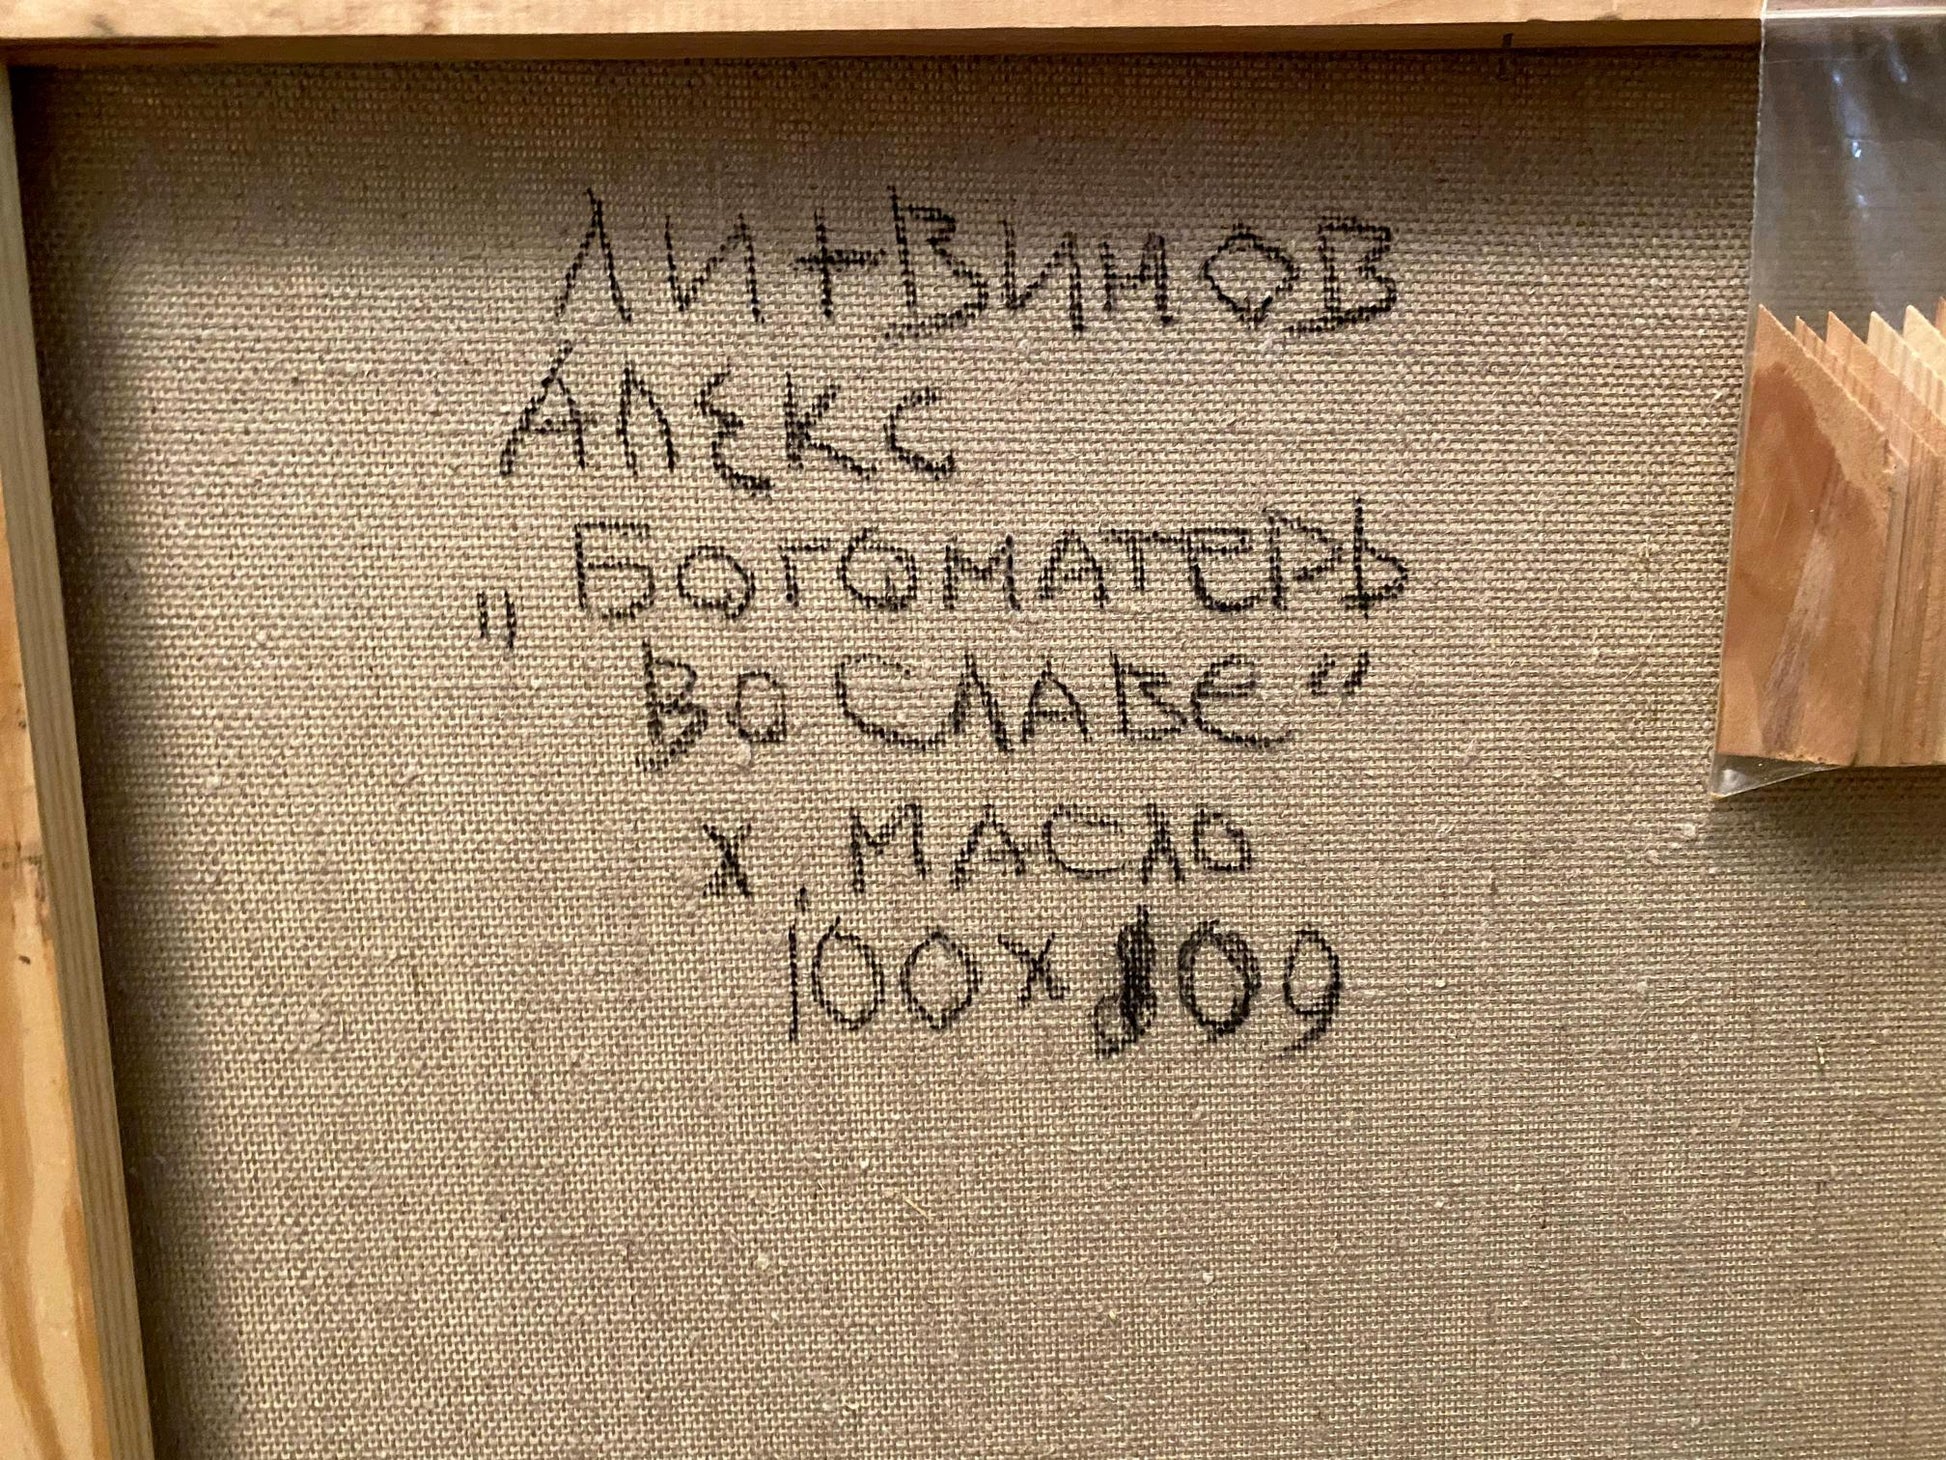 Литвинов
Алекс
"Богоматерь
Во Славе"
х. масло
100х109